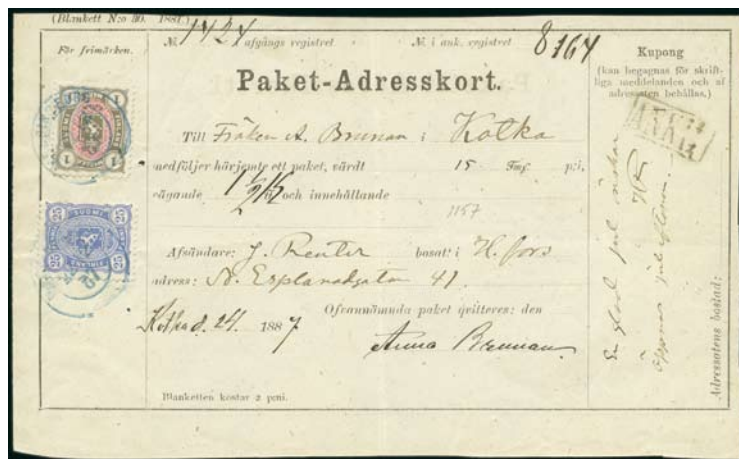 (Blankett N:o 30. 1881.)
För frimärken.
№ 1424 afgångs registret
№ i ank. registret 8164
Paket-Adresskort.
Till Fröken A. Brunnan i Kotka
medföljer härjemte ett paket, värdt 15 Fmf. p:i,
vägande 1 1/2 och innehållande
1157
Afsändare: J. Renter bosat: i H.fors
adress: N. Esplanadgatan 41
Ofvannämnda paket qvitteres: den
Kotka d. 24. 1887
Anna Brennan
Blanketten kostar 2 p:ni.
Kupong
(kan begagnas för skrift-
liga meddelanden och af
adressaten behållas.)
ANK
En glad jul önskar
öppnas julaftonen.
Adressatens bostad:
1
1
1
25
SUOMI
25
25
25